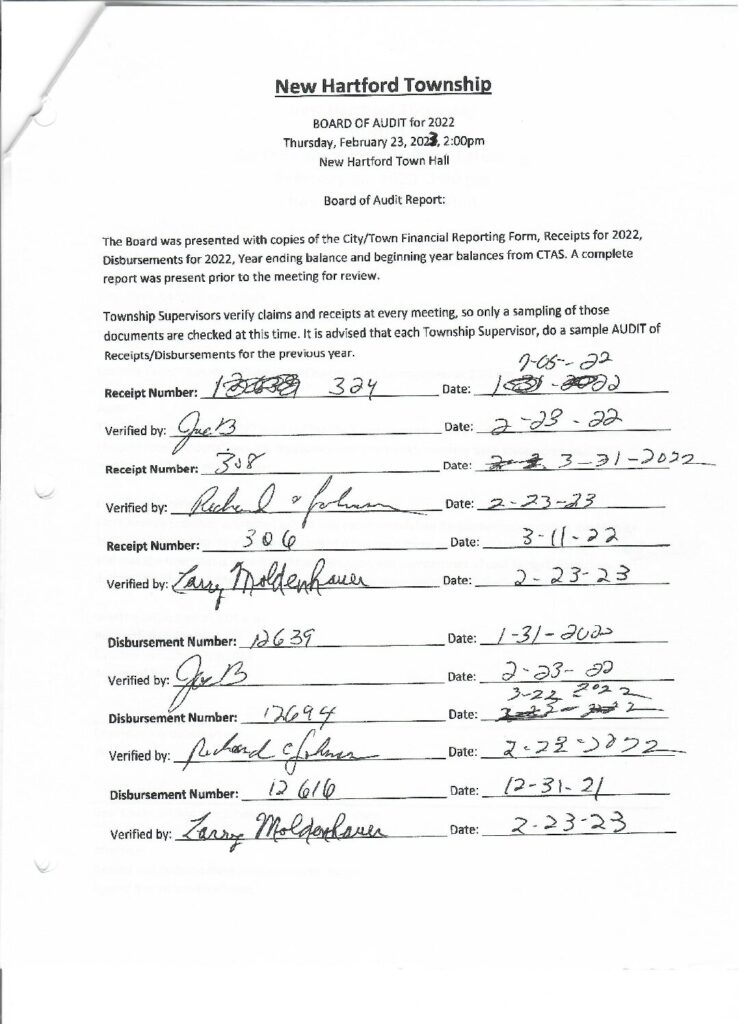 New Hartford Township
BOARD OF AUDIT for 2022
Thursday, February 23, 2023, 2:00pm
New Hartford Town Hall
Board of Audit Report:
The Board was presented with copies of the City/Town Financial Reporting Form, Receipts for 2022,
Disbursements for 2022, Year ending balance and beginning year balances from CTAS. A complete
report was present prior to the meeting for review.
Township Supervisors verify claims and receipts at every meeting, so only a sampling of those
documents are checked at this time. It is advised that each Township Supervisor, do a sample AUDIT of
Receipts/Disbursements for the previous year.
7-05-22
Receipt Number: 324 Date:
Verified by: Joe B Date: 2-23-22
Receipt Number: 308 Date: 3-21-2022
Verified by: Richard Johnson Date: 2-23-23
Receipt Number: 306 Date: 3-11-22
Verified by: Larry Moldenhauer Date: 2-23-23
Disbursement Number: 12639 Date: 1-31-2022
Verified by: Joe B Date: 2-23-22
3-22 2022
Disbursement Number: 12694 Date:
Verified by: Richard C Johnson Date: 2-23-2022
Disbursement Number: 12616 Date: 12-31-21
Verified by: Larry Moldenhauer Date: 2-23-23